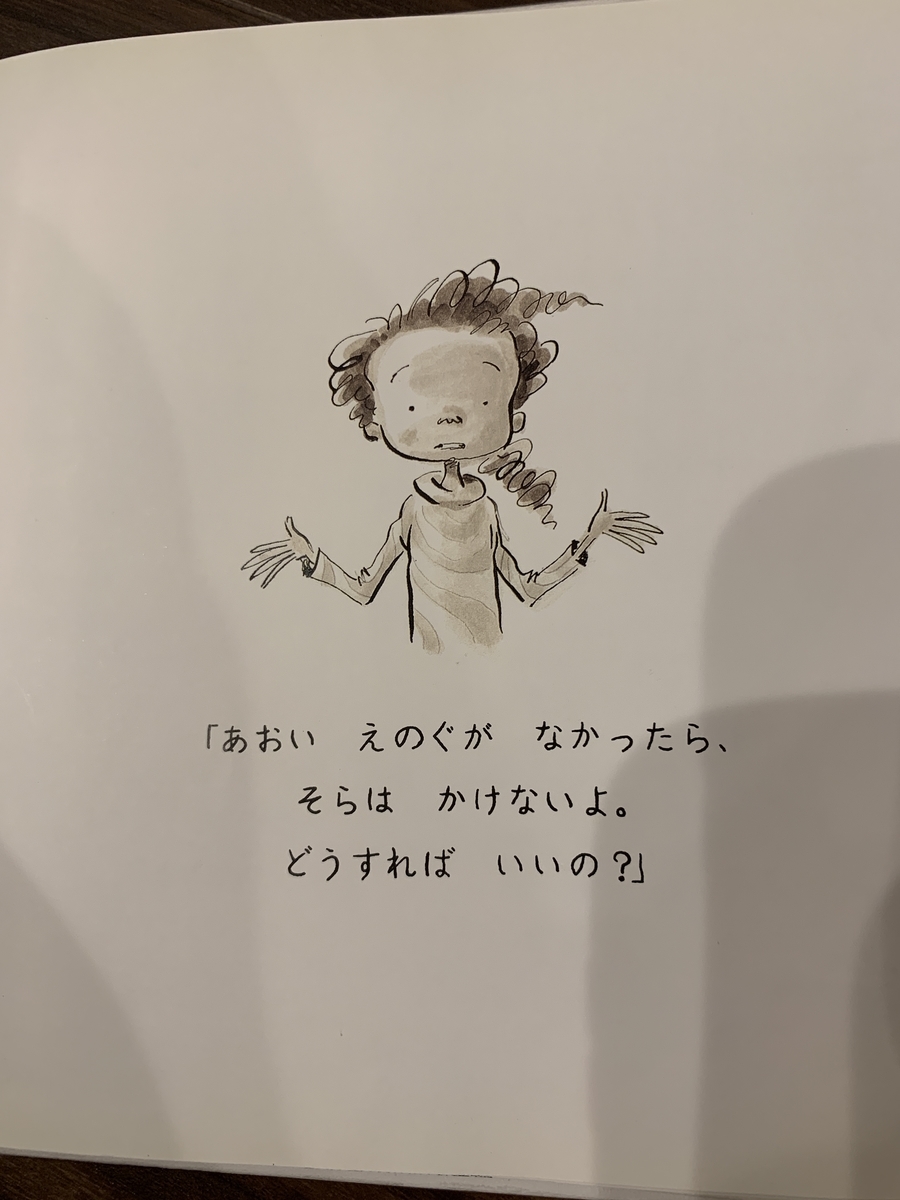 「あおい　えのぐが　なかったら、
そらは　かけないよ。
どうすれば　いいの？」